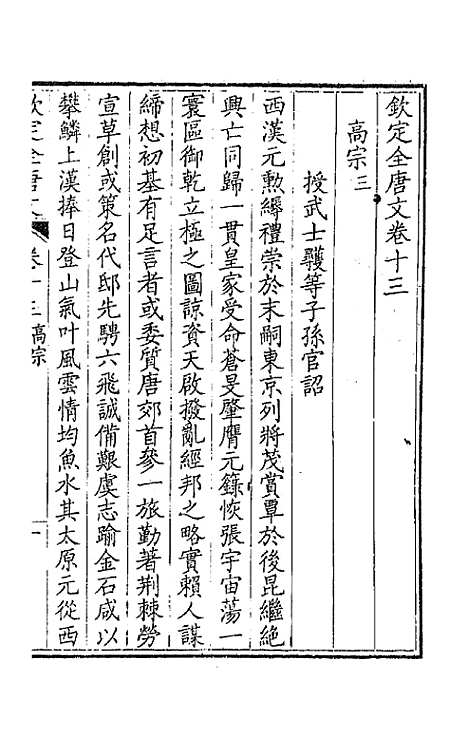 欽定全唐文卷十三
高宗三
授武士彠等子孫官詔
西漢元勲縟禮崇於末嗣東京列將茂賞覃於後昆繼絶
興亡同歸一貫皇家受命蒼旻肇膺元籙恢張宇宙蕩一
寰區御乾立極之圖諒資天啟撥亂經邦之略實賴人謀
締想初基有足言者或委質唐郊首參一旅勤著荆棘勞
宣草創或策名代邸先騁六飛誠備艱虞志踰金石咸以
攀鱗上漢捧日登山氣叶風雲情均魚水其太原元從西
欽定全唐文 卷十三 高宗 一